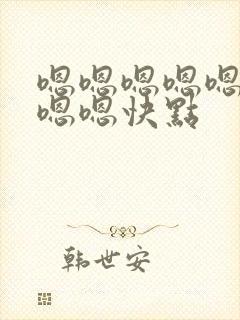 嗯嗯嗯嗯嗯
嗯嗯快點
韩世安